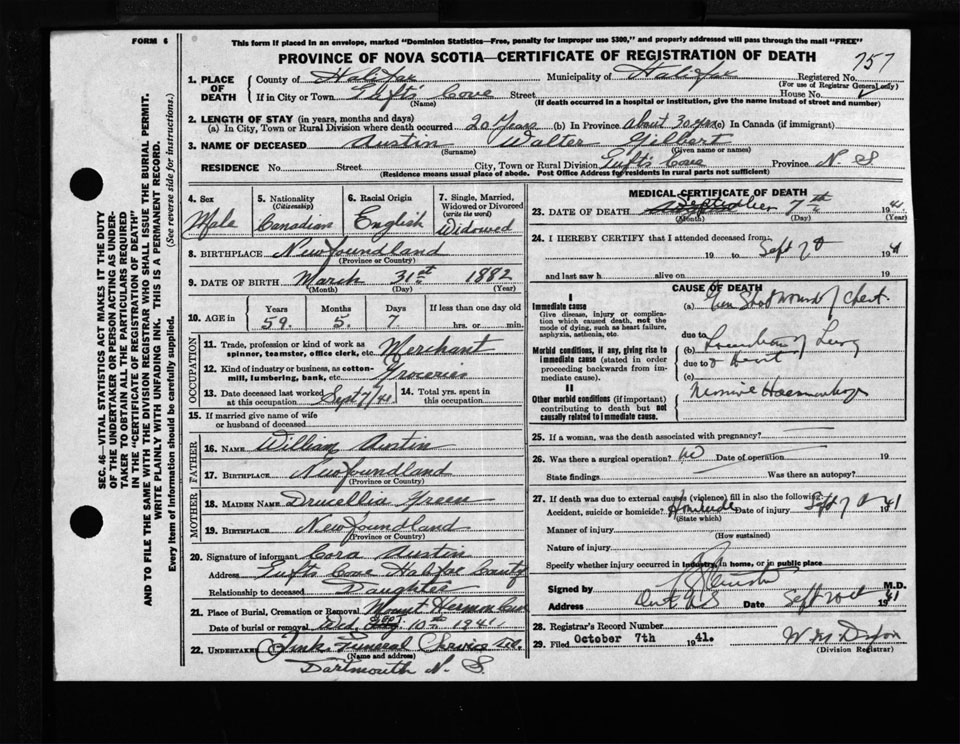 FORM 6
This form if placed in an envelope, marked "Dominion Statistics—Free, penalty for improper use $300," and properly addressed will pass through the mail "FREE"
PROVINCE OF NOVA SCOTIA—CERTIFICATE OF REGISTRATION OF DEATH
757
1. PLACE OF DEATH
County of Halifax Municipality of Halifax Registered No.
(For use of Registrar General only)
If in City or Town Tufts Cove Street House No.
(Name) (If death occurred in a hospital or institution, give the name instead of street and number)
2. LENGTH OF STAY (in years, months and days)
(a) In City, Town or Rural Division where death occurred 20 Years (b) In Province About 30 yrs (c) In Canada (if immigrant)
3. NAME OF DECEASED Austin Walter Gilbert
(Surname) (Given name or names)
RESIDENCE No. Street City, Town or Rural Division Tufts Cove Province N. S
(Residence means usual place of abode. Post Office Address for residents in rural parts not sufficient)
4. Sex
Male
5. Nationality
(Citizenship)
Canadian
6. Racial Origin
English
7. Single, Married, Widowed or Divorced
(write the word)
Widowed
8. BIRTHPLACE Newfoundland
(Province or Country)
9. DATE OF BIRTH March 31st 1882
(Month) (Day) (Year)
10. AGE in
Years Months Days If less than one day old
59. 5. 7 hrs. or min.
OCCUPATION
11. Trade, profession or kind of work as spinner, teamster, office clerk, etc. Merchant
12. Kind of industry or business, as cotton-mill, lumbering, bank, etc. Groceries
13. Date deceased last worked at this occupation Sept 7/41
14. Total yrs. spent in this occupation
15. If married give name of wife or husband of deceased
FATHER
16. NAME William Austin
17. BIRTHPLACE Newfoundland
(Province or Country)
MOTHER
18. MAIDEN NAME Drucellia Green
19. BIRTHPLACE Newfoundland
(Province or Country)
20. Signature of informant Cora Austin
Address Tufts Cove Halifax County
Relationship to deceased Daughter
21. Place of Burial, Cremation or Removal Mount Hermon Cem
Date of burial or removal Wed. Sep 10th 1941
22. UNDERTAKER Zink Funeral Service Ltd.
(Name and address)
Dartmouth N. S.
MEDICAL CERTIFICATE OF DEATH
23. DATE OF DEATH September 7th 1941
(Month) (Day) (Year)
24. I HEREBY CERTIFY that I attended deceased from:
19 to Sept 7th 1941
and last saw h alive on 19
CAUSE OF DEATH
I
Immediate cause
Give disease, injury or complication which caused death, not the mode of dying, such as heart failure, asphyxia, asthenia, etc.
(a) Gun Shot wounds of Chest
due to
Morbid conditions, if any, giving rise to immediate cause (stated in order proceeding backwards from immediate cause).
(b) of Lung
due to
(c)
II
Other morbid conditions (if important) contributing to death but not causally related to immediate cause.
Haemorrhage
25. If a woman, was the death associated with pregnancy?
26. Was there a surgical operation? No Date of operation 19
State findings Was there an autopsy?
27. If death was due to external causes (violence) fill in also the following:
Accident, suicide or homicide? Homicide Date of injury Sept 7th 1941
(State which)
Manner of injury
(How sustained)
Nature of injury
Specify whether injury occurred in industry, in home, or in public place
Signed by M.D.
Address Date Sept 1941
28. Registrar's Record Number
29. Filed October 7th 1941.
(Division Registrar)
SEC. 46—VITAL STATISTICS ACT MAKES IT THE DUTY
OF THE UNDERTAKER OR PERSON ACTING AS UNDER-
TAKER TO OBTAIN ALL THE PARTICULARS REQUIRED
IN THE "CERTIFICATE OF REGISTRATION OF DEATH"
AND TO FILE THE SAME WITH THE DIVISION REGISTRAR WHO SHALL ISSUE THE BURIAL PERMIT.
WRITE PLAINLY WITH UNFADING INK. THIS IS A PERMANENT RECORD.
Every item of information should be carefully supplied. (See reverse side for instructions.)